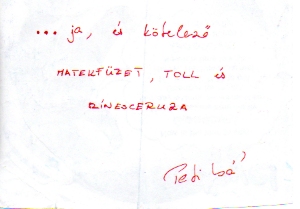 ... ja, és kötelező
MATEKFÜZET, TOLL és
SZÍNESCERUZA
Peti